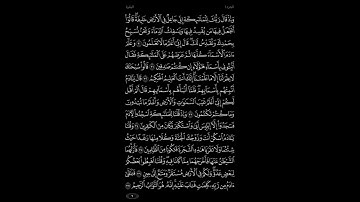 وَإِذْ قَالَ رَبُّكَ لِلْمَلَٰٓئِكَةِ إِنِّى جَاعِلٌ فِى ٱلْأَرْضِ خَلِيفَةً قَالُوٓا۟
أَتَجْعَلُ فِيهَا مَن يُفْسِدُ فِيهَا وَيَسْفِكُ ٱلدِّمَآءَ وَنَحْنُ نُسَبِّحُ
بِحَمْدِكَ وَنُقَدِّسُ لَكَ قَالَ إِنِّىٓ أَعْلَمُ مَا لَا تَعْلَمُونَ ٣٠ وَعَلَّمَ
ءَادَمَ ٱلْأَسْمَآءَ كُلَّهَا ثُمَّ عَرَضَهُمْ عَلَى ٱلْمَلَٰٓئِكَةِ فَقَالَ
أَنۢبِـُٔونِى بِأَسْمَآءِ هَٰٓؤُلَآءِ إِن كُنتُمْ صَٰدِقِينَ ٣١ قَالُوا۟ سُبْحَٰنَكَ
لَا عِلْمَ لَنَآ إِلَّا مَا عَلَّمْتَنَآ إِنَّكَ أَنتَ ٱلْعَلِيمُ ٱلْحَكِيمُ ٣٢ قَالَ يَٰٓـَٔادَمُ
أَنۢبِئْهُم بِأَسْمَآئِهِمْ فَلَمَّآ أَنۢبَأَهُم بِأَسْمَآئِهِمْ قَالَ أَلَمْ أَقُل
لَّكُمْ إِنِّىٓ أَعْلَمُ غَيْبَ ٱلسَّمَٰوَٰتِ وَٱلْأَرْضِ وَأَعْلَمُ مَا تُبْدُونَ
وَمَا كُنتُمْ تَكْتُمُونَ ٣٣ وَإِذْ قُلْنَا لِلْمَلَٰٓئِكَةِ ٱسْجُدُوا۟ لِـَٔادَمَ
فَسَجَدُوٓا۟ إِلَّآ إِبْلِيسَ أَبَىٰ وَٱسْتَكْبَرَ وَكَانَ مِنَ ٱلْكَٰفِرِينَ ٣٤
وَقُلْنَا يَٰٓـَٔادَمُ ٱسْكُنْ أَنتَ وَزَوْجُكَ ٱلْجَنَّةَ وَكُلَا مِنْهَا رَغَدًا حَيْثُ
شِئْتُمَا وَلَا تَقْرَبَا هَٰذِهِ ٱلشَّجَرَةَ فَتَكُونَا مِنَ ٱلظَّٰلِمِينَ ٣٥ فَأَزَلَّهُمَا
ٱلشَّيْطَٰنُ عَنْهَا فَأَخْرَجَهُمَا مِمَّا كَانَا فِيهِ وَقُلْنَا ٱهْبِطُوا۟ بَعْضُكُمْ
لِبَعْضٍ عَدُوٌّ وَلَكُمْ فِى ٱلْأَرْضِ مُسْتَقَرٌّ وَمَتَٰعٌ إِلَىٰ حِينٍ ٣٦ فَتَلَقَّىٰٓ
ءَادَمُ مِن رَّبِّهِۦ كَلِمَٰتٍ فَتَابَ عَلَيْهِ إِنَّهُۥ هُوَ ٱلتَّوَّابُ ٱلرَّحِيمُ ٣٧